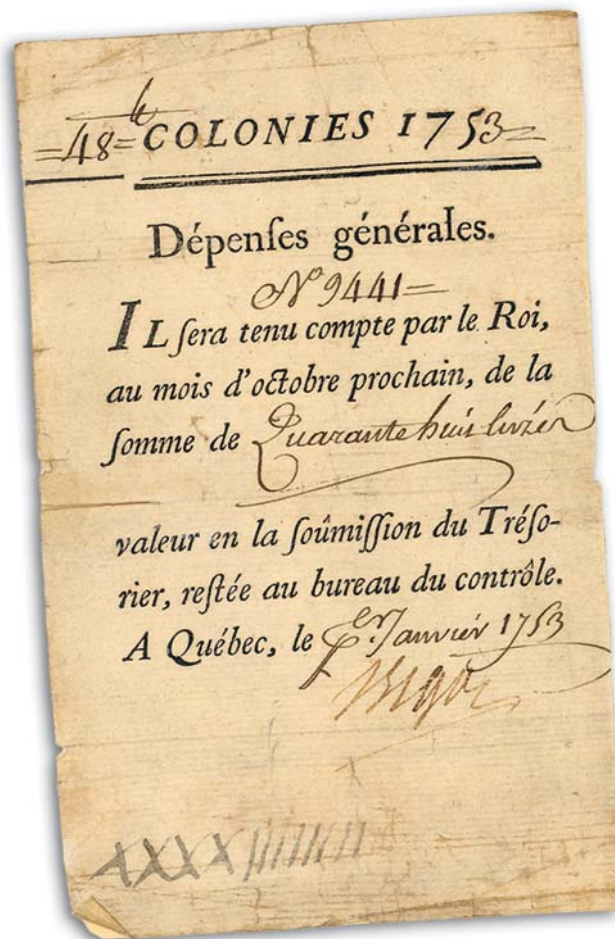 =48=
COLONIES 1753=
Dépenſes générales.
N.° 9441=
IL ſera tenu compte par le Roi,
au mois d'octobre prochain, de la
ſomme de Quarante huit livres
valeur en la ſoûmiſſion du Tréſo-
rier, reſtée au bureau du contrôle.
A Québec, le p.er Janvier 1753
Bigot
XXXXIIIIIIII